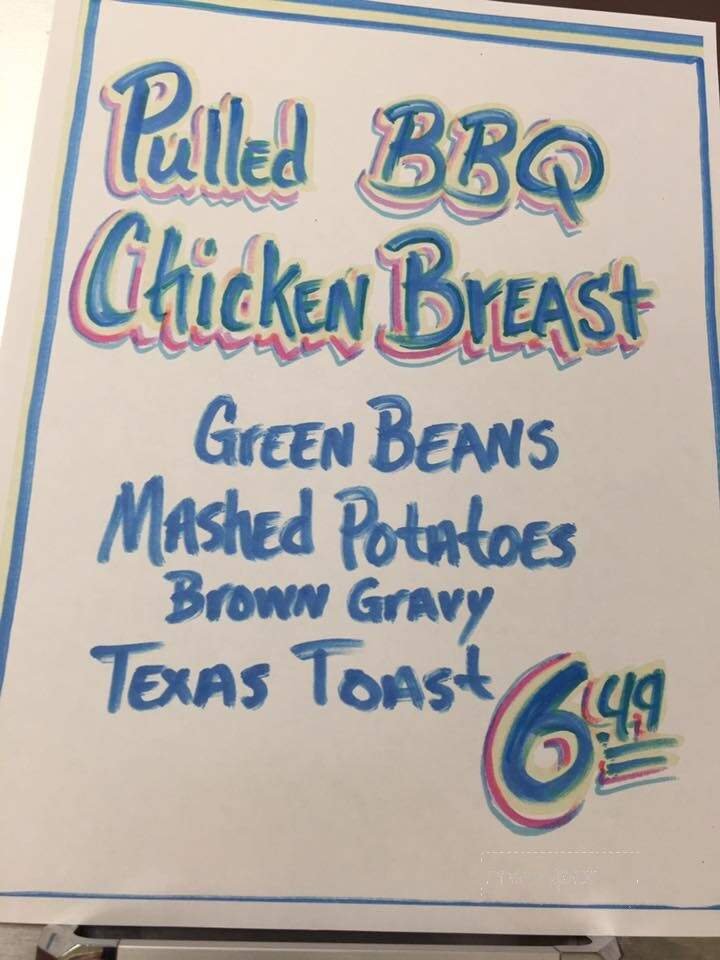 Pulled BBQ
Chicken Breast
Green Beans
Mashed Potatoes
Brown Gravy
Texas Toast
6.49